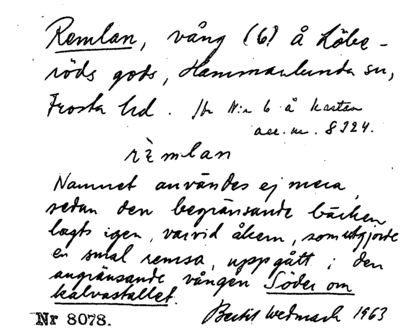 Remlan, vång (6) å Löbe-
röds gods, Hammarlunda sn,
Frosta hd. Jfr N:r 6 å kartan
acc. nr. 8324.
rèmlan
Namnet användes ej mera,
sedan den begränsande bäcken
lagts igen, varvid åkern, som utgjorde
en smal remsa, uppgått i den
angränsande vången Söder om
kalvastallet.
Nr 8078. Bertil Wedmark 1963